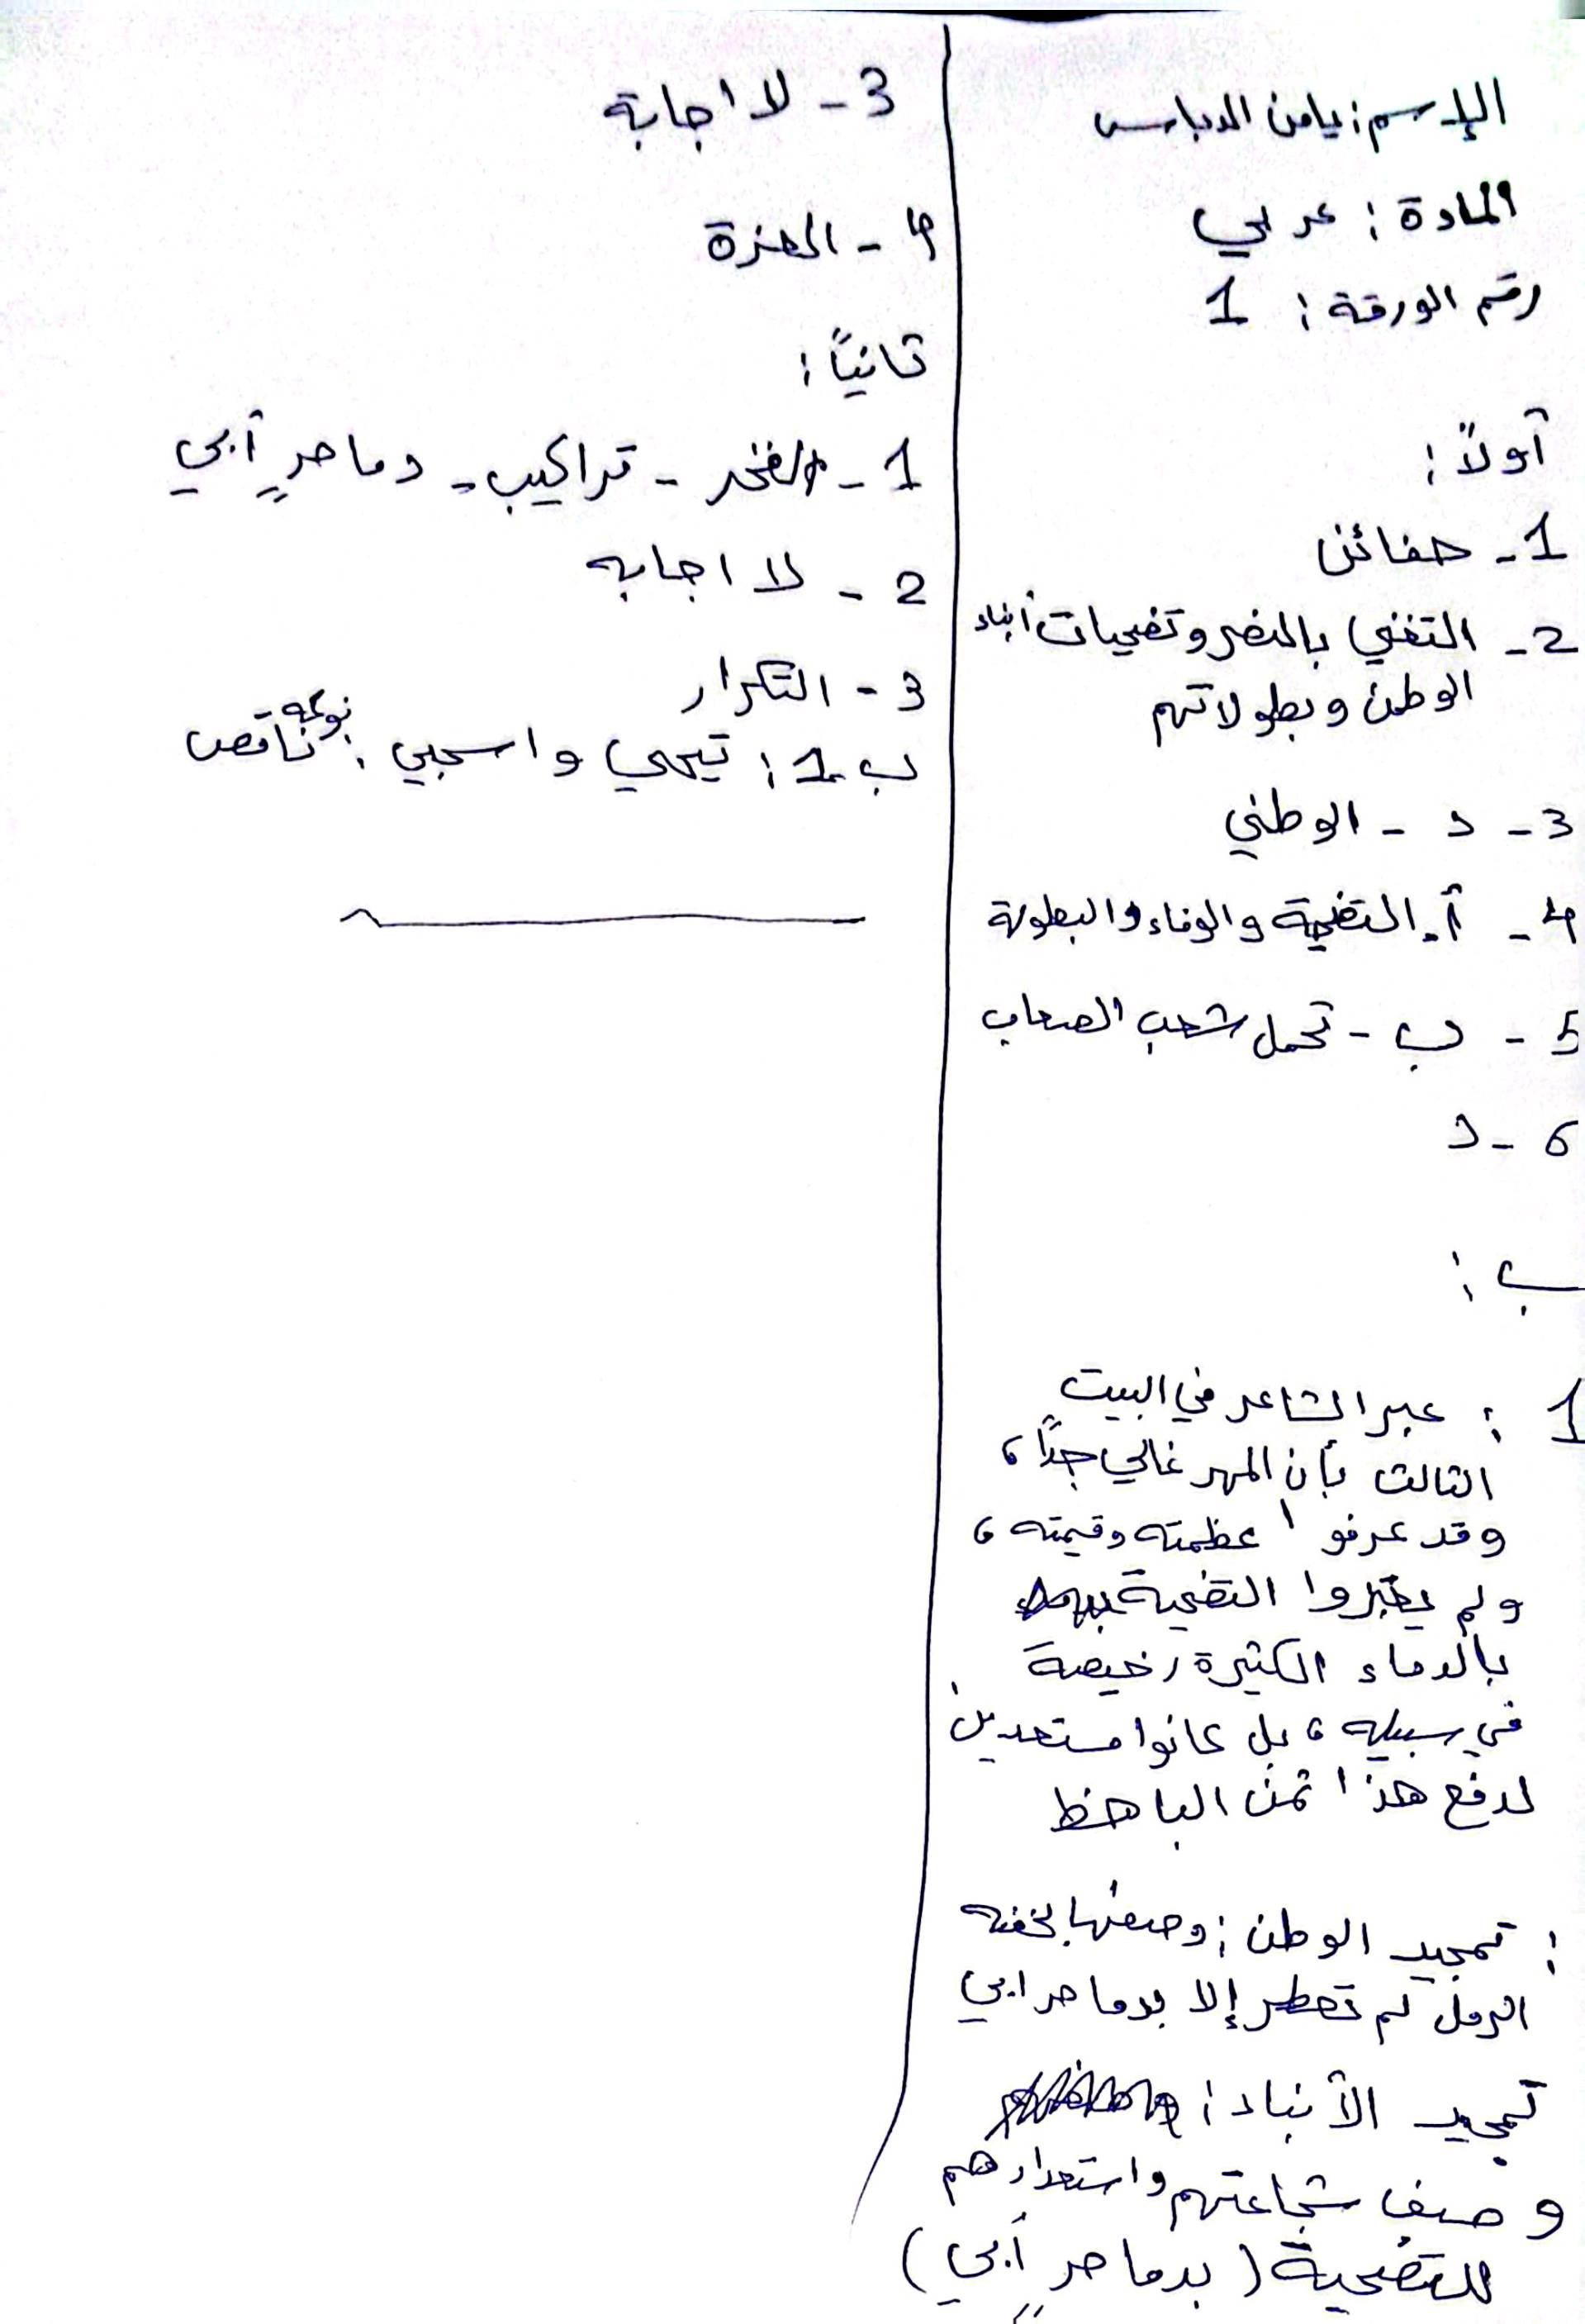 الإسم: يامن الدباس
المادة: عربي
رقم الورقة: 1
أولاً:
1- ضغائن
2- التغني بالنصر وتضحيات أبناء
الوطن وبطولاتهم
3- د - الوطني
4- أ. التضحية والوفاء والبطولة
5- ب - تحمل شعب الصعاب
6- د
ب:
1: عبر الشاعر في البيت
الثالث بأن المهر غالي جداً،
وقد عرفوا عظمته وقيمته،
ولم يعتبروا التضحية
بالدماء الكثيرة رخيصة
في سبيله، بل كانوا مستعدين
لدفع هذا ثمن الباهظ
: تمجيد الوطن: وصفها بحفنة
الرمل لم تعطر إلا بدما حر ابي
تمجيد الأبناء:
وصف شجاعتهم واستعدادهم
للتضحية (بدما حرٍ أبي)
3- لا اجابة
4- العزة
ثانياً:
1- الفخر - تراكيب - دما حرٍ أبي
2- لا اجابه
3- التكرار
ب 1: تيهي واسحبي: نوعه ناقص